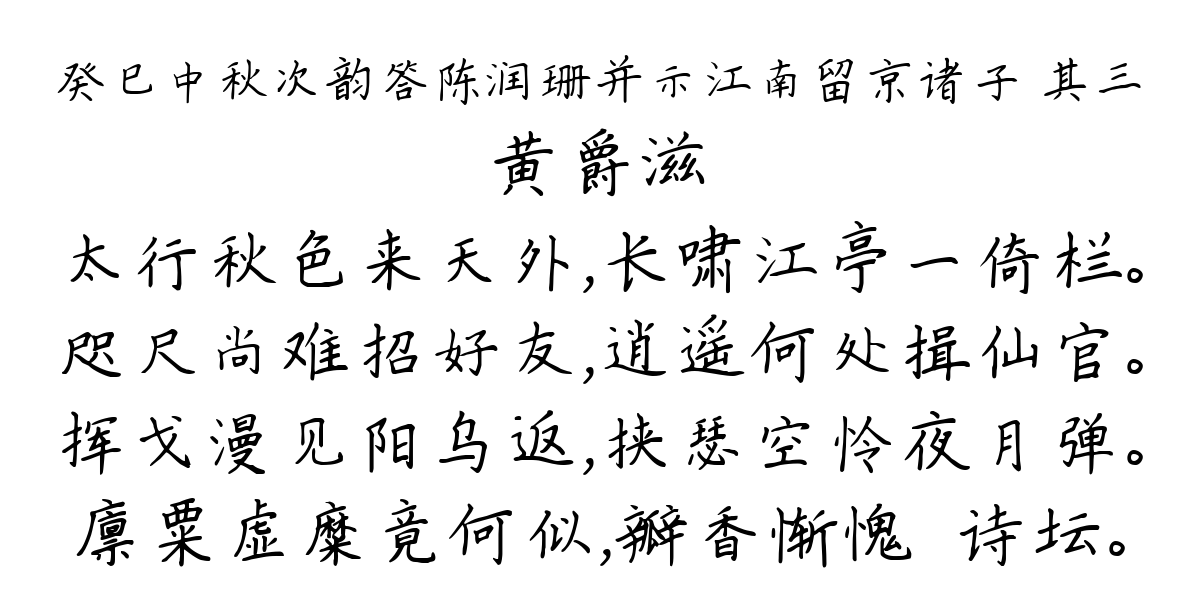 癸巳中秋次韵答陈润珊并示江南留京诸子 其三
黄爵滋
太行秋色来天外,长啸江亭一倚栏。
咫尺尚难招好友,逍遥何处揖仙官。
挥戈漫见阳乌返,挟瑟空怜夜月弹。
廪粟虚糜竟何似,瓣香惭愧 诗坛。